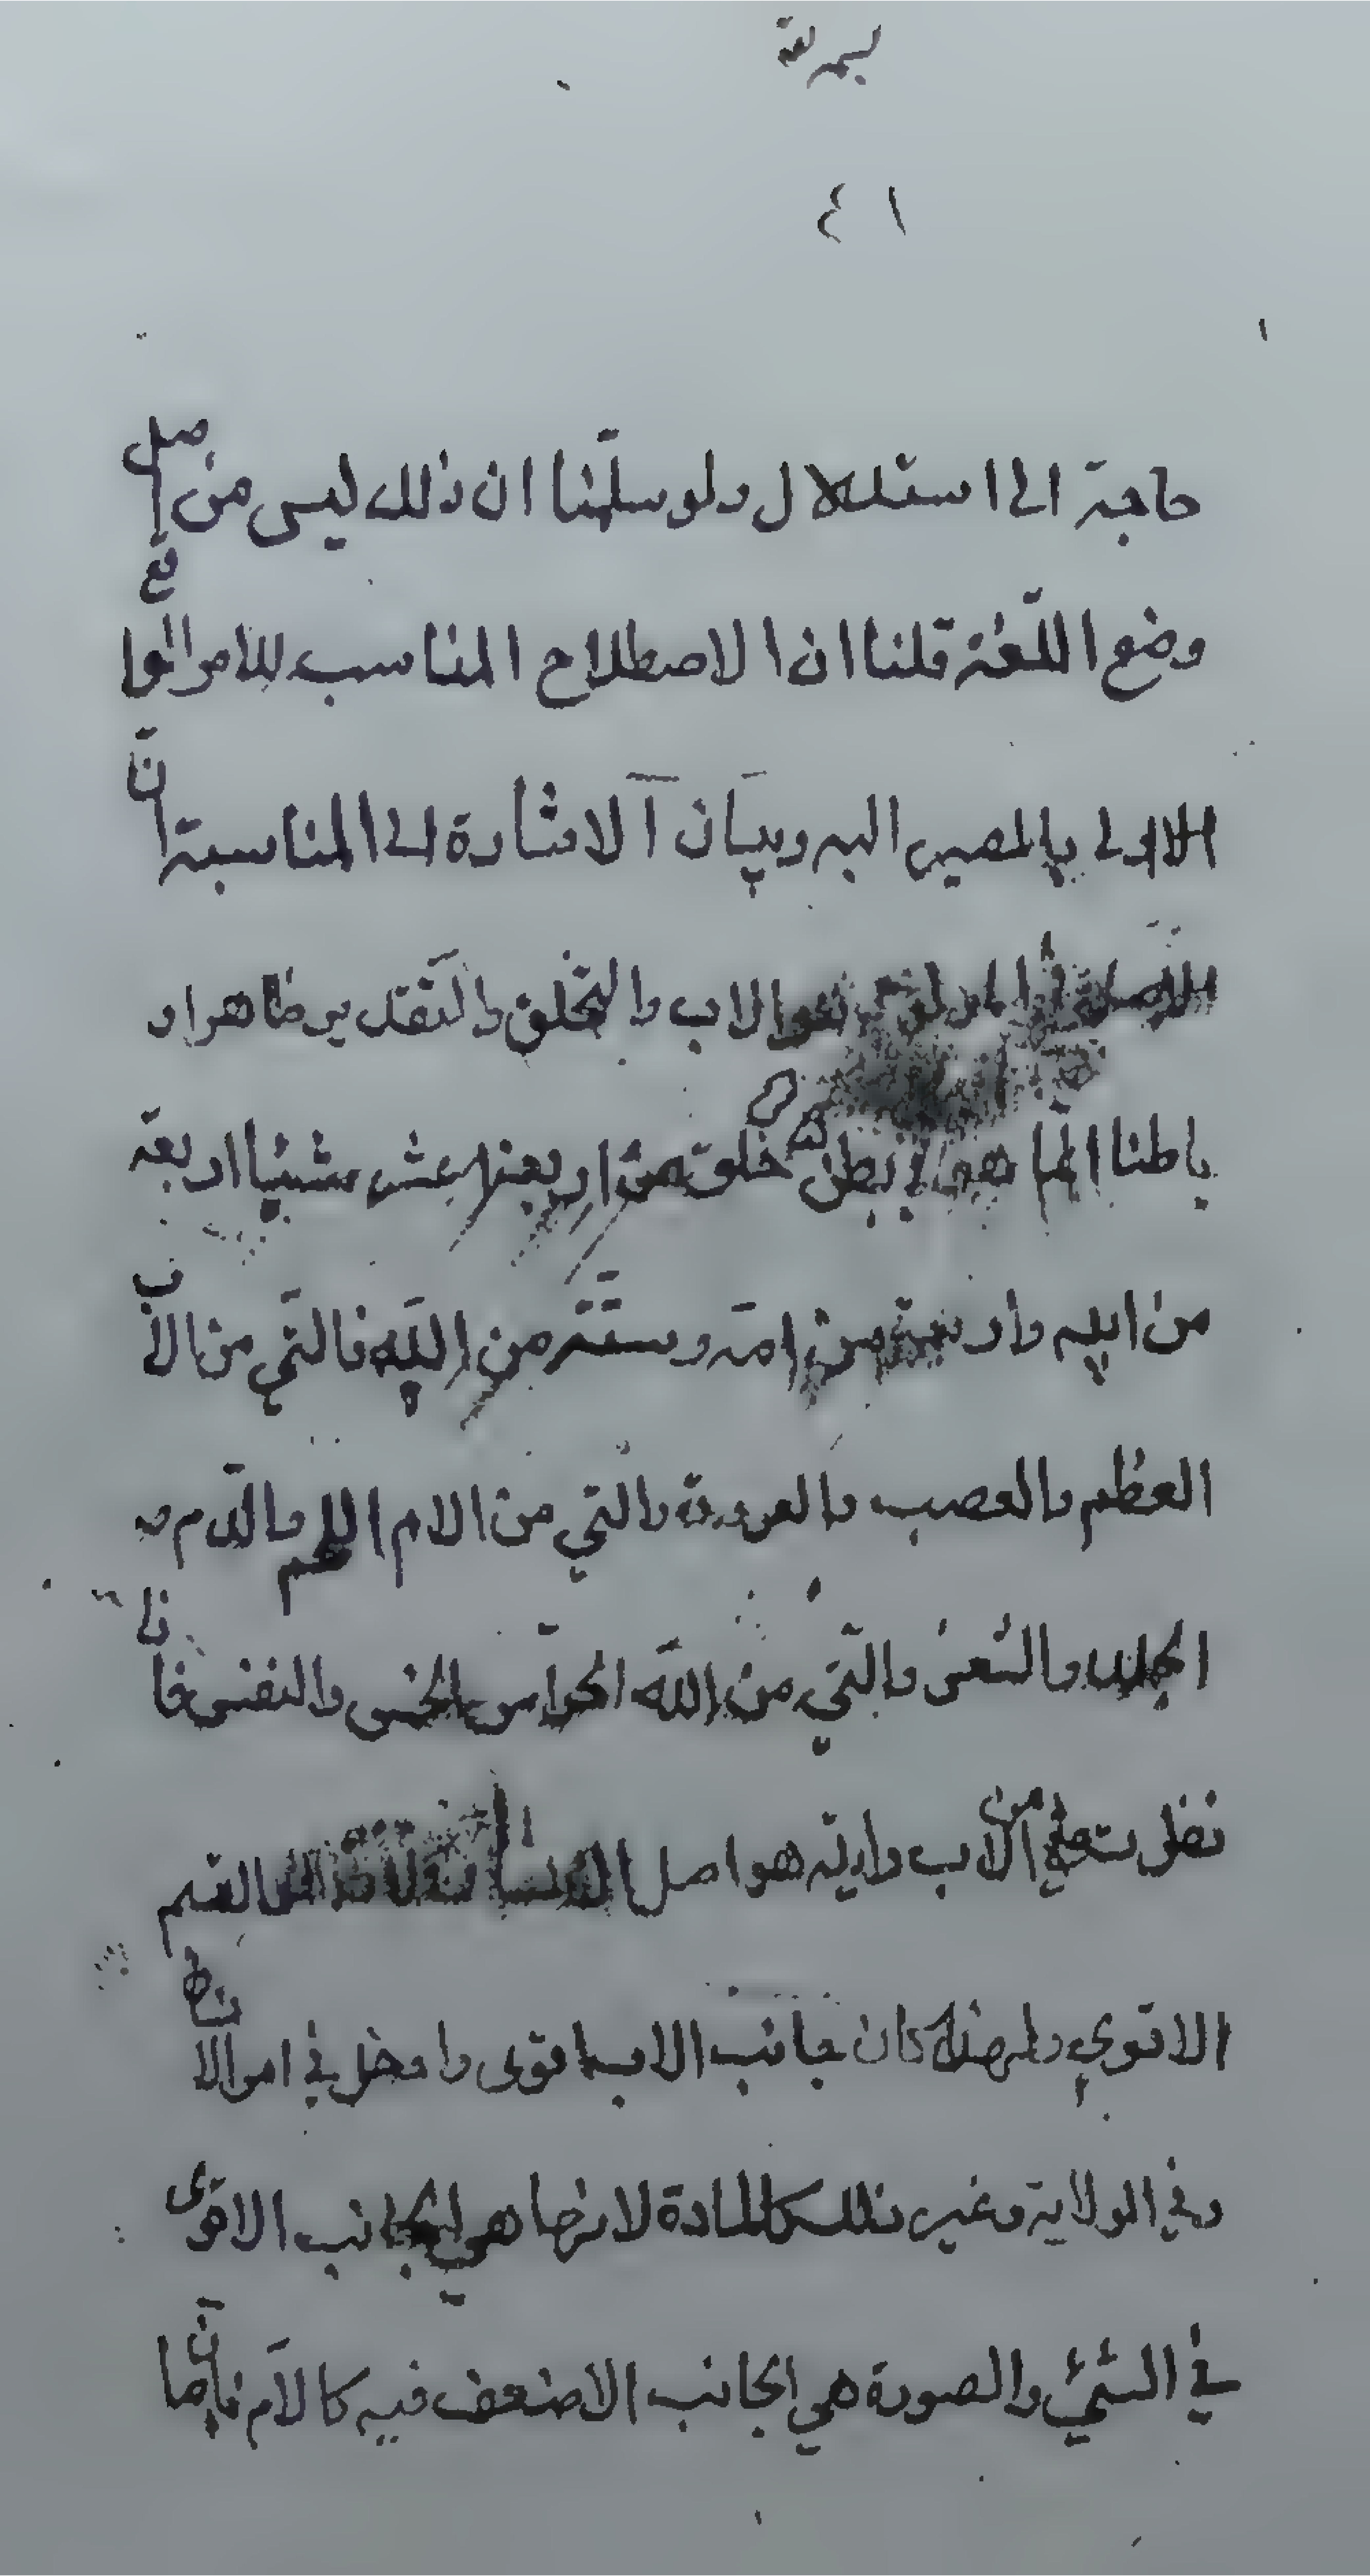 ١٤
حاجة الى استدلال ولو سلّمنا ان ذلك ليس من اصل
وضع اللّغة قلنا ان الاصطلاح المناسب للامر الواقع
الاولى بالمصير اليه وبيان الاشارة الى المناسبة انّ
الاب والتخلق والتقدير ظاهرا و
باطنا انما هما في بطن خلق من اربعة عشر شيئا اربعة
من ابيه واربعة من امّه وستّة من اللّه فالتي من الاب
العظم والعصب والعروق والتي من الام اللحم والدّم و
الجلد والشعر والّتي من اللّه الحواس الخمس والنفس فاذا
نظرت من الاب وايّه هو اصل القسم
الاقوى ولهذا كان جانب الاب اقوى وادخل في امر
وفي الولاية وغير ذلك كالمادة لانها هي الجانب الاقوى
في الشئ والصورة هي الجانب الاضعف فيه كالامّ فانّها